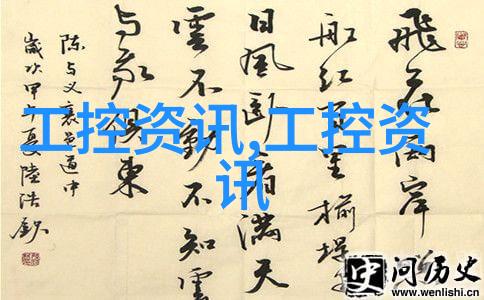 飛花兩岸照
船紅百里榆堤半
日風臥看滿天
雲不動不知雲
与我俱東
陈与义襄邑道中
歲次甲午夏陸浩
工控资讯,工控资
讯
史问历史
www.wenlishi.cn